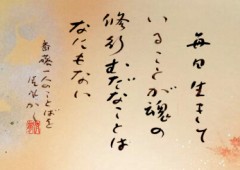 毎日生きて
いることが魂の
修行むだなことは
なにもない
斎藤一人のことばを